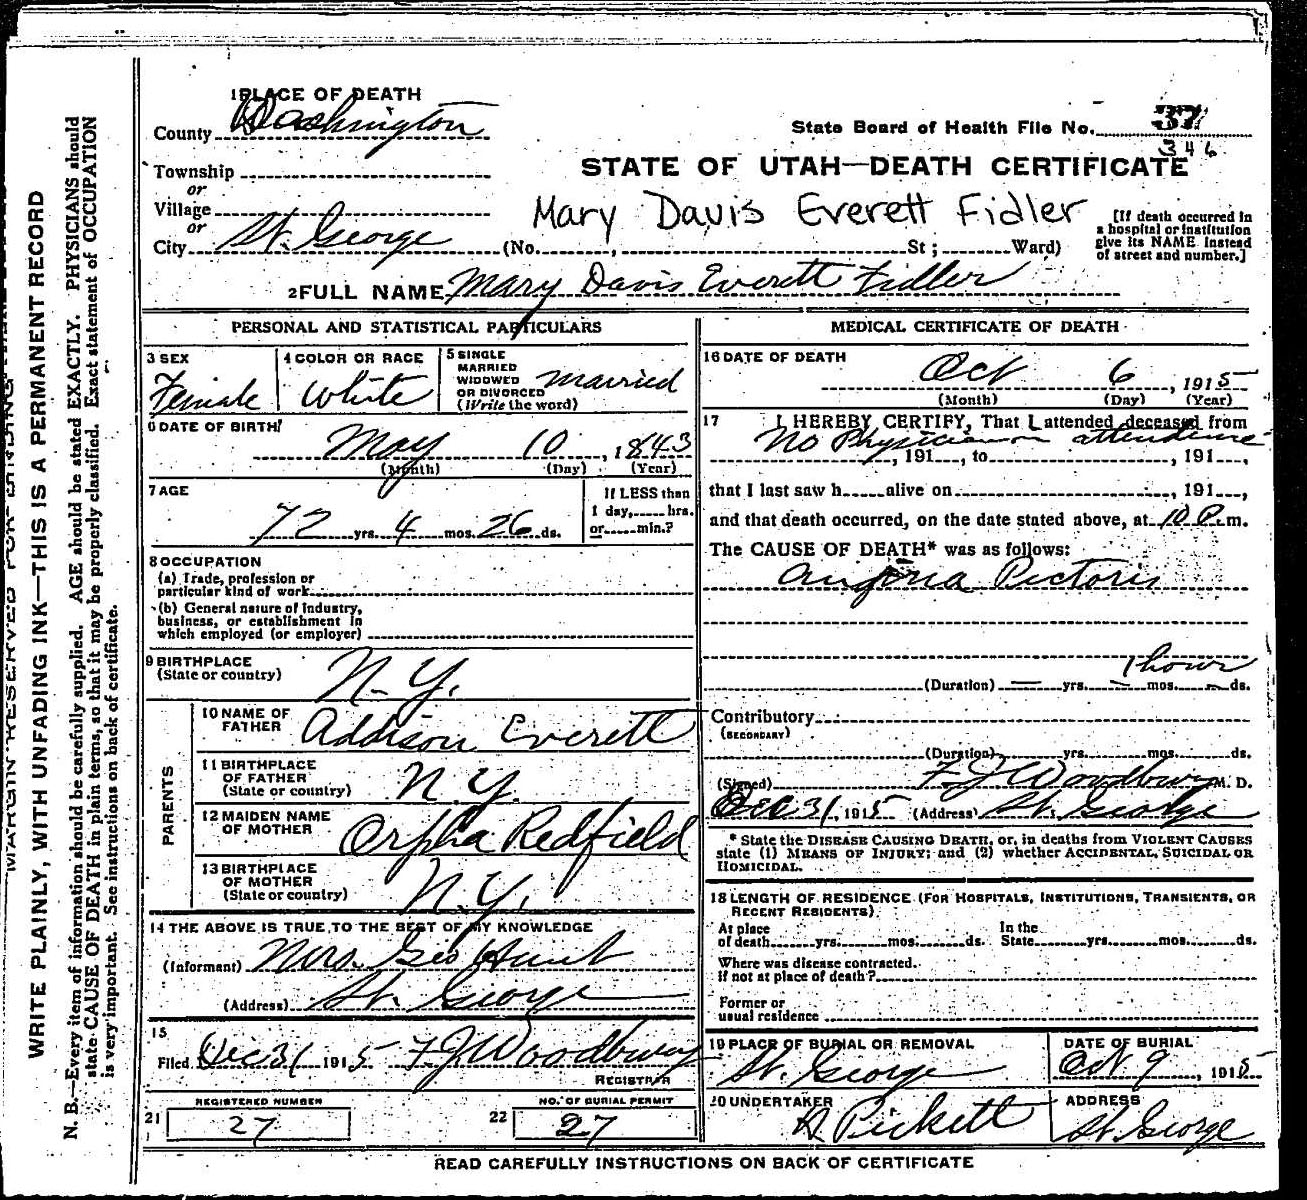 MARGIN RESERVED FOR BINDING
WRITE PLAINLY, WITH UNFADING INK—THIS IS A PERMANENT RECORD
N. B.—Every item of information should be carefully supplied. AGE should be stated EXACTLY. PHYSICIANS should
state CAUSE OF DEATH in plain terms, so that it may be properly classified. Exact statement of OCCUPATION
is very important. See instructions on back of certificate.
1 PLACE OF DEATH
County Washington
State Board of Health File No. 37
346
Township
or
Village
or
City St. George
STATE OF UTAH—DEATH CERTIFICATE
Mary Davis Everett Fidler
(No. , St; Ward)
[If death occurred in
a hospital or institution
give its NAME instead
of street and number.]
2 FULL NAME Mary Davis Everett Fidler
PERSONAL AND STATISTICAL PARTICULARS
3 SEX
Female
4 COLOR OR RACE
White
5 SINGLE
MARRIED
WIDOWED
OR DIVORCED
(Write the word)
married
6 DATE OF BIRTH
May 10, 1843
(Month) (Day) (Year)
7 AGE
72 yrs. 4 mos. 26 ds.
If LESS than
1 day, hrs.
or min.?
8 OCCUPATION
(a) Trade, profession or
particular kind of work
(b) General nature of Industry,
business, or establishment in
which employed (or employer)
9 BIRTHPLACE
(State or country)
N. Y.
PARENTS
10 NAME OF
FATHER
Addison Everett
11 BIRTHPLACE
OF FATHER
(State or country)
N. Y.
12 MAIDEN NAME
OF MOTHER
Orpha Redfield
13 BIRTHPLACE
OF MOTHER
(State or country)
N. Y.
14 THE ABOVE IS TRUE TO THE BEST OF MY KNOWLEDGE
(Informant) Mrs. Geo Hunt
(Address) St. George
15
Filed Dec 31 1915 F. J. Woodbury
REGISTRAR
REGISTERED NUMBER
21 27
NO. OF BURIAL PERMIT
22 27
MEDICAL CERTIFICATE OF DEATH
16 DATE OF DEATH
Oct 6, 1915
(Month) (Day) (Year)
17 I HEREBY CERTIFY, That I attended deceased from
No Physician in attendance
, 191 , to , 191 ,
that I last saw h alive on , 191 ,
and that death occurred, on the date stated above, at 10 P. m.
The CAUSE OF DEATH* was as follows:
Angina Pectoris
1 hour
(Duration) — yrs. — mos. — ds.
Contributory
(SECONDARY)
(Duration) yrs. mos. ds.
(Signed) F. J. Woodbury M. D.
Dec 31, 1915 (Address) St. George
* State the DISEASE CAUSING DEATH, or, in deaths from VIOLENT CAUSES
state (1) MEANS OF INJURY; and (2) whether ACCIDENTAL, SUICIDAL OR
HOMICIDAL.
18 LENGTH OF RESIDENCE (FOR HOSPITALS, INSTITUTIONS, TRANSIENTS, OR
RECENT RESIDENTS)
At place
of death yrs. mos. ds.
In the
State yrs. mos. ds.
Where was disease contracted.
if not at place of death?
Former or
usual residence
19 PLACE OF BURIAL OR REMOVAL
St. George
DATE OF BURIAL
Oct 9, 1915
20 UNDERTAKER
H Pickett
ADDRESS
St. George
READ CAREFULLY INSTRUCTIONS ON BACK OF CERTIFICATE